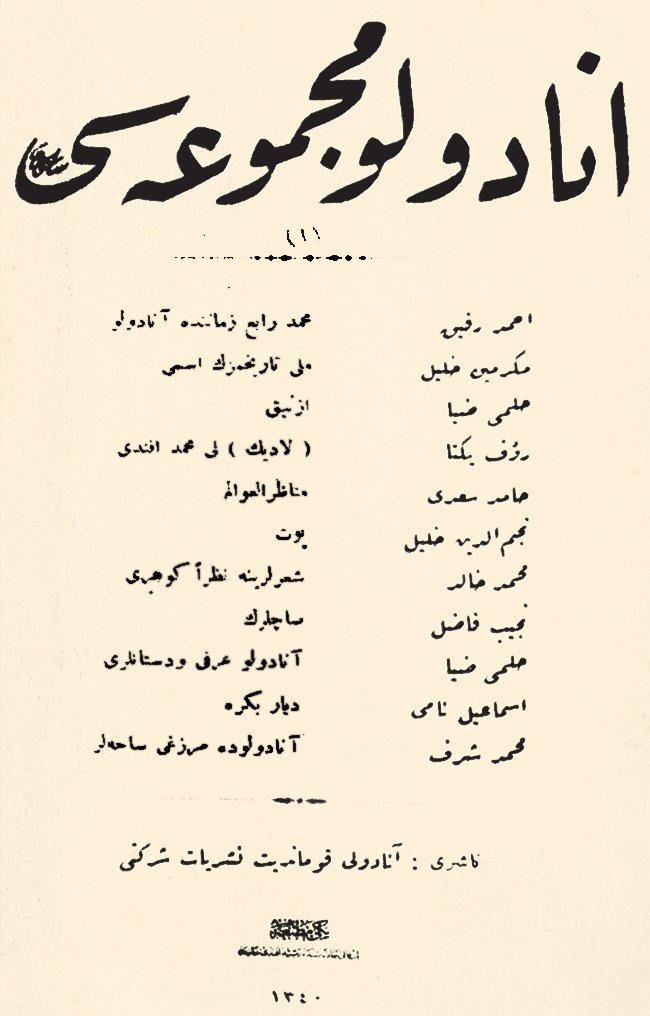 انادولو مجموعه سی
احمد رفیق محمد رابع زماننده آنادولو
مکرمین خلیل ملی تاریخمزك اسمی
حلمی ضیا ازنیق
رؤف یکتا ( لادیك ) لی محمد افندی
حامد سعدی مناظرالعوالم
نجم الدین خلیل پوت
محمد خالد شعرلرینه نظراً کوهری
نجیب فاضل صاچلرك
حلمی ضیا آنادولو عرفی ودستانلری
اسماعیل نامی دیار بکره
محمد شرف آنادولوده مرزغی ساحه‌لر
ناشری : آنادولی قوماندیت نشریات شرکتی
١٣٤٠